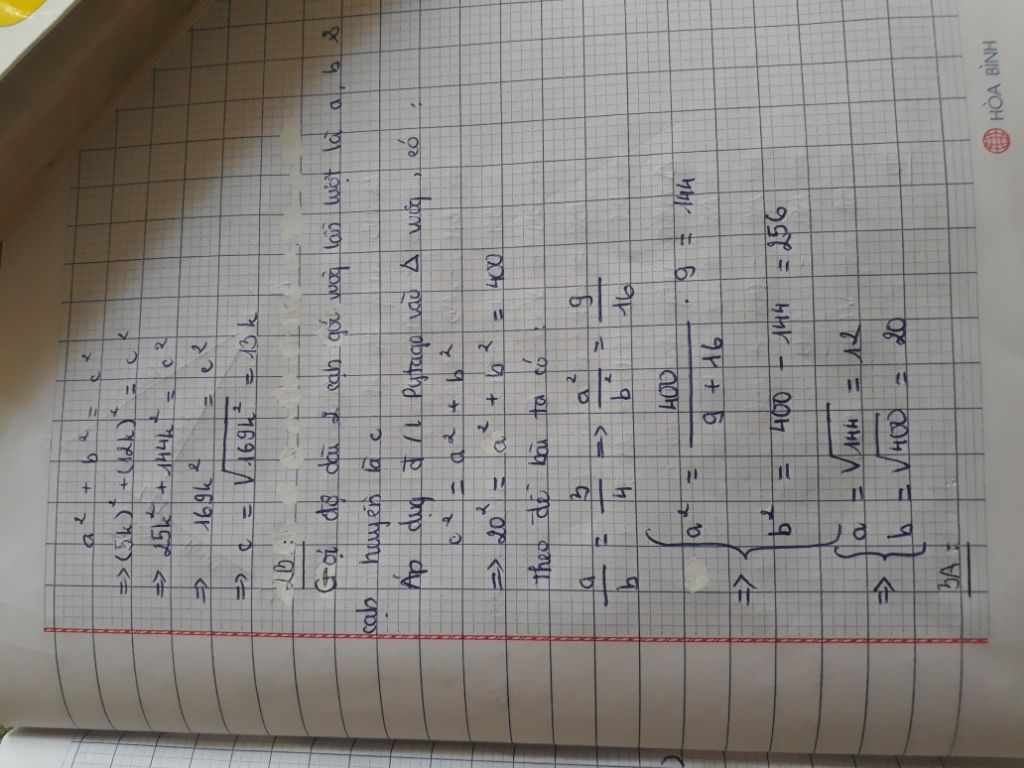 a² + b² = c²
=> (5k)² + (12k)² = c²
=> 25k² + 144k² = c²
=> 169k² = c²
=> c = √169k² = 13k
2B:
Gọi độ dài 2 cạh góc vuôg lần lượt là a, b 2
cạh huyền là c
Áp dụg đ/l Pytago vào Δ vuôg, có:
c² = a² + b²
=> 20² = a² + b² = 400
theo đề bài ta có:
a/b = 3/4 => a²/b² = 9/16
=> { a² = 400/(9 + 16) . 9 = 144
b² = 400 - 144 = 256
=> { a = √144 = 12
b = √400 = 20
3A:
HÒA BÌNH